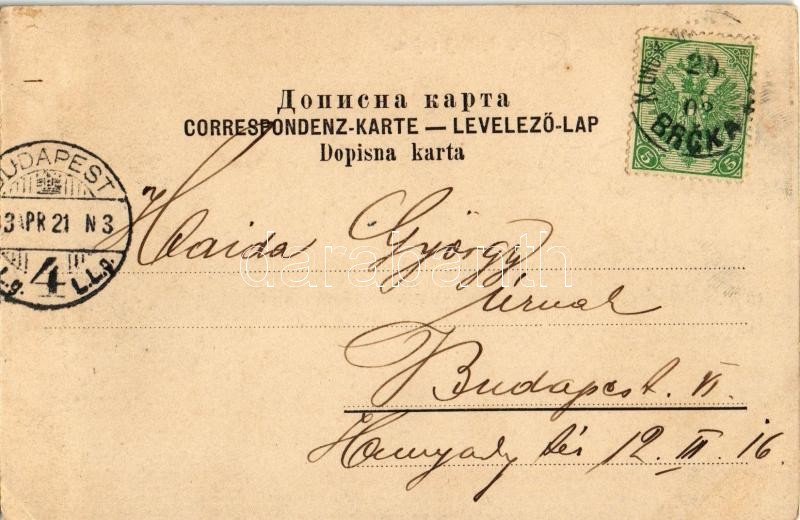 Дописна карта
CORRESPONDENZ-KARTE — LEVELEZŐ-LAP
Dopisna karta
20
03
BRČKA
5 5
BUDAPEST
3 APR 21 N3
4
L.L.g.
Haida György
úrnak
Budapest. VI.
Hunyady tér 12. III. 16.
darabanth